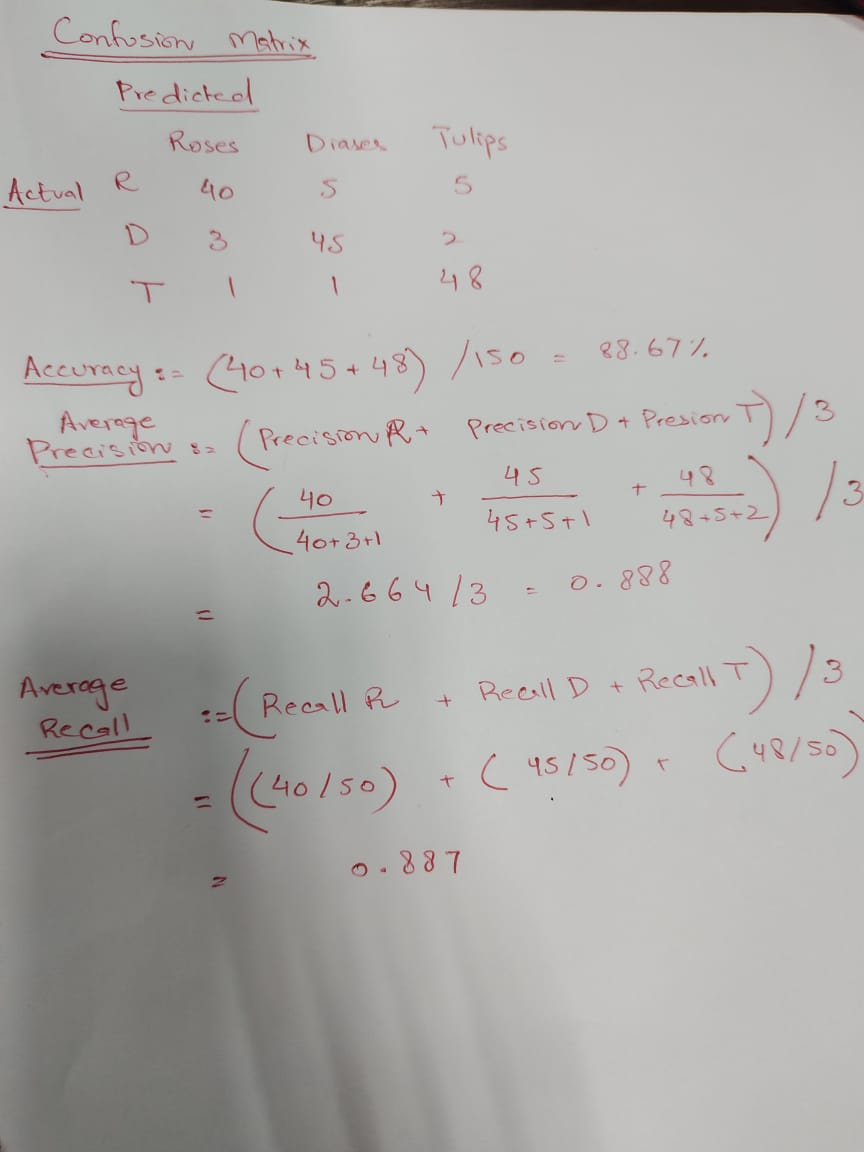 Confusion Matrix
Predicted
Roses Diases Tulips
Actual R 40 5 5
D 3 45 2
T 1 1 48
Accuracy := (40+45+48) /150 = 88.67%
Average
Precision := (Precision R + Precision D + Presion T) / 3
= (40/40+3+1 + 45/45+5+1 + 48/48+5+2) / 3
= 2.664 / 3 = 0.888
Average
Recall := (Recall R + Recall D + Recall T) / 3
= ((40/50) + (45/50) + (48/50)
= 0.887